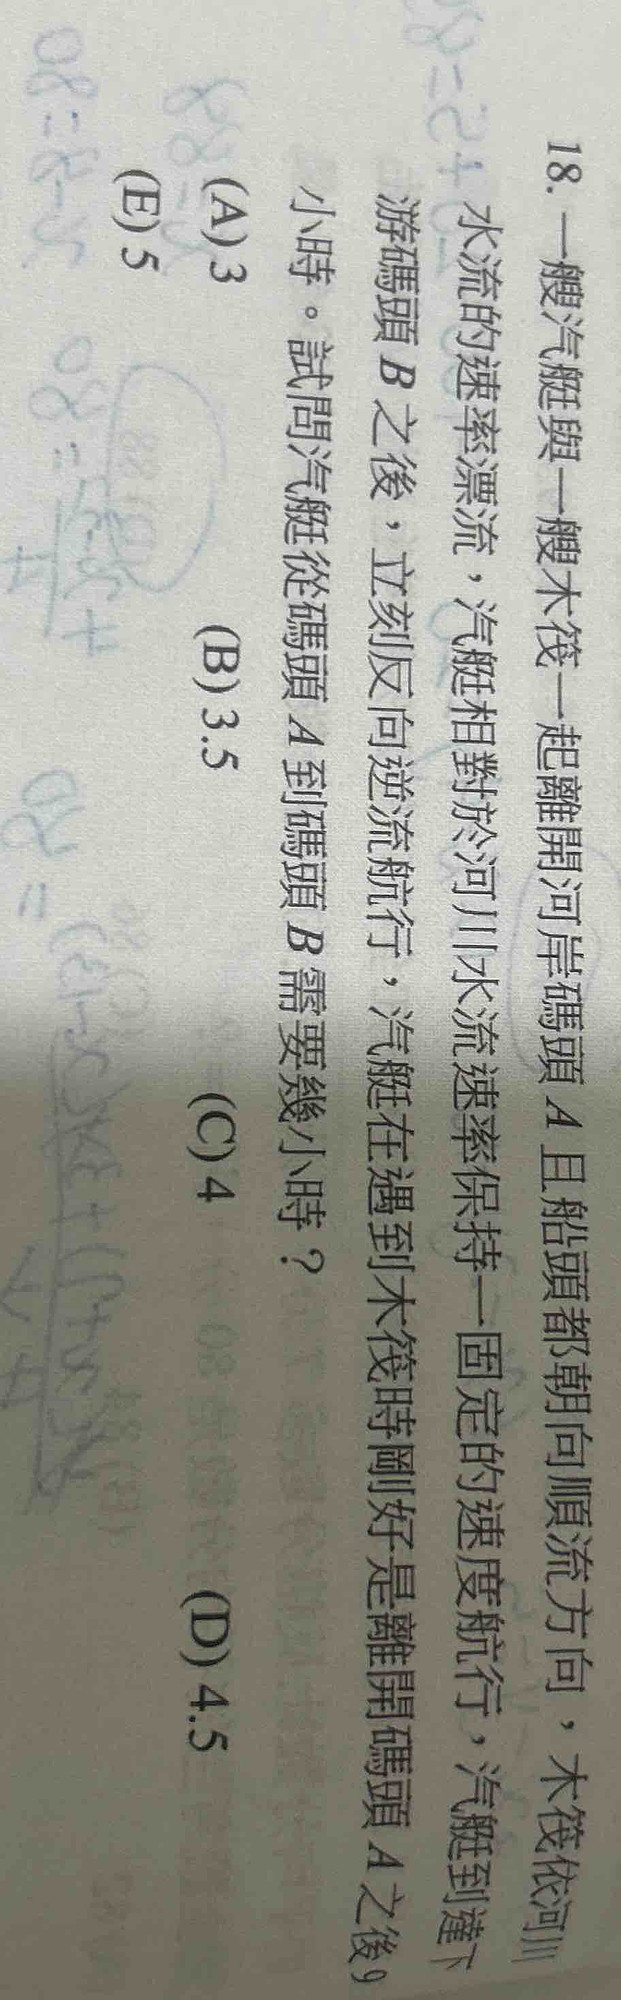 18. 一艘汽艇與一艘木筏一起離開河岸碼頭 A 且船頭都朝向順流方向，木筏依河川
水流的速率漂流，汽艇相對於河川水流速率保持一固定的速度航行，汽艇到達下
游碼頭 B 之後，立刻反向逆流航行，汽艇在遇到木筏時剛好是離開碼頭 A 之後9
小時。試問汽艇從碼頭 A 到碼頭 B 需要幾小時？
(A) 3 (B) 3.5 (C) 4 (D) 4.5
(E) 5